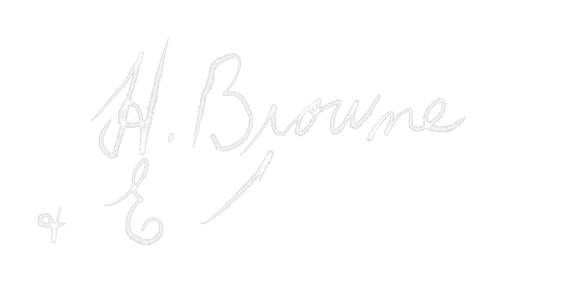 H. Browne
E